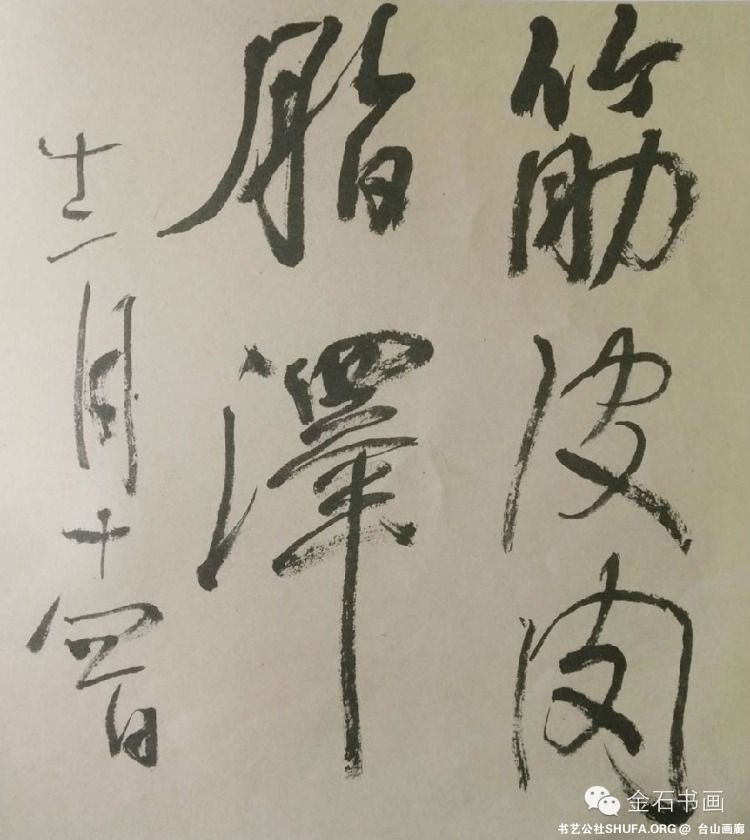 筋皮肉
脂澤
十二月十四日
金石书画
书艺公社SHUFA.ORG @ 台山画廊